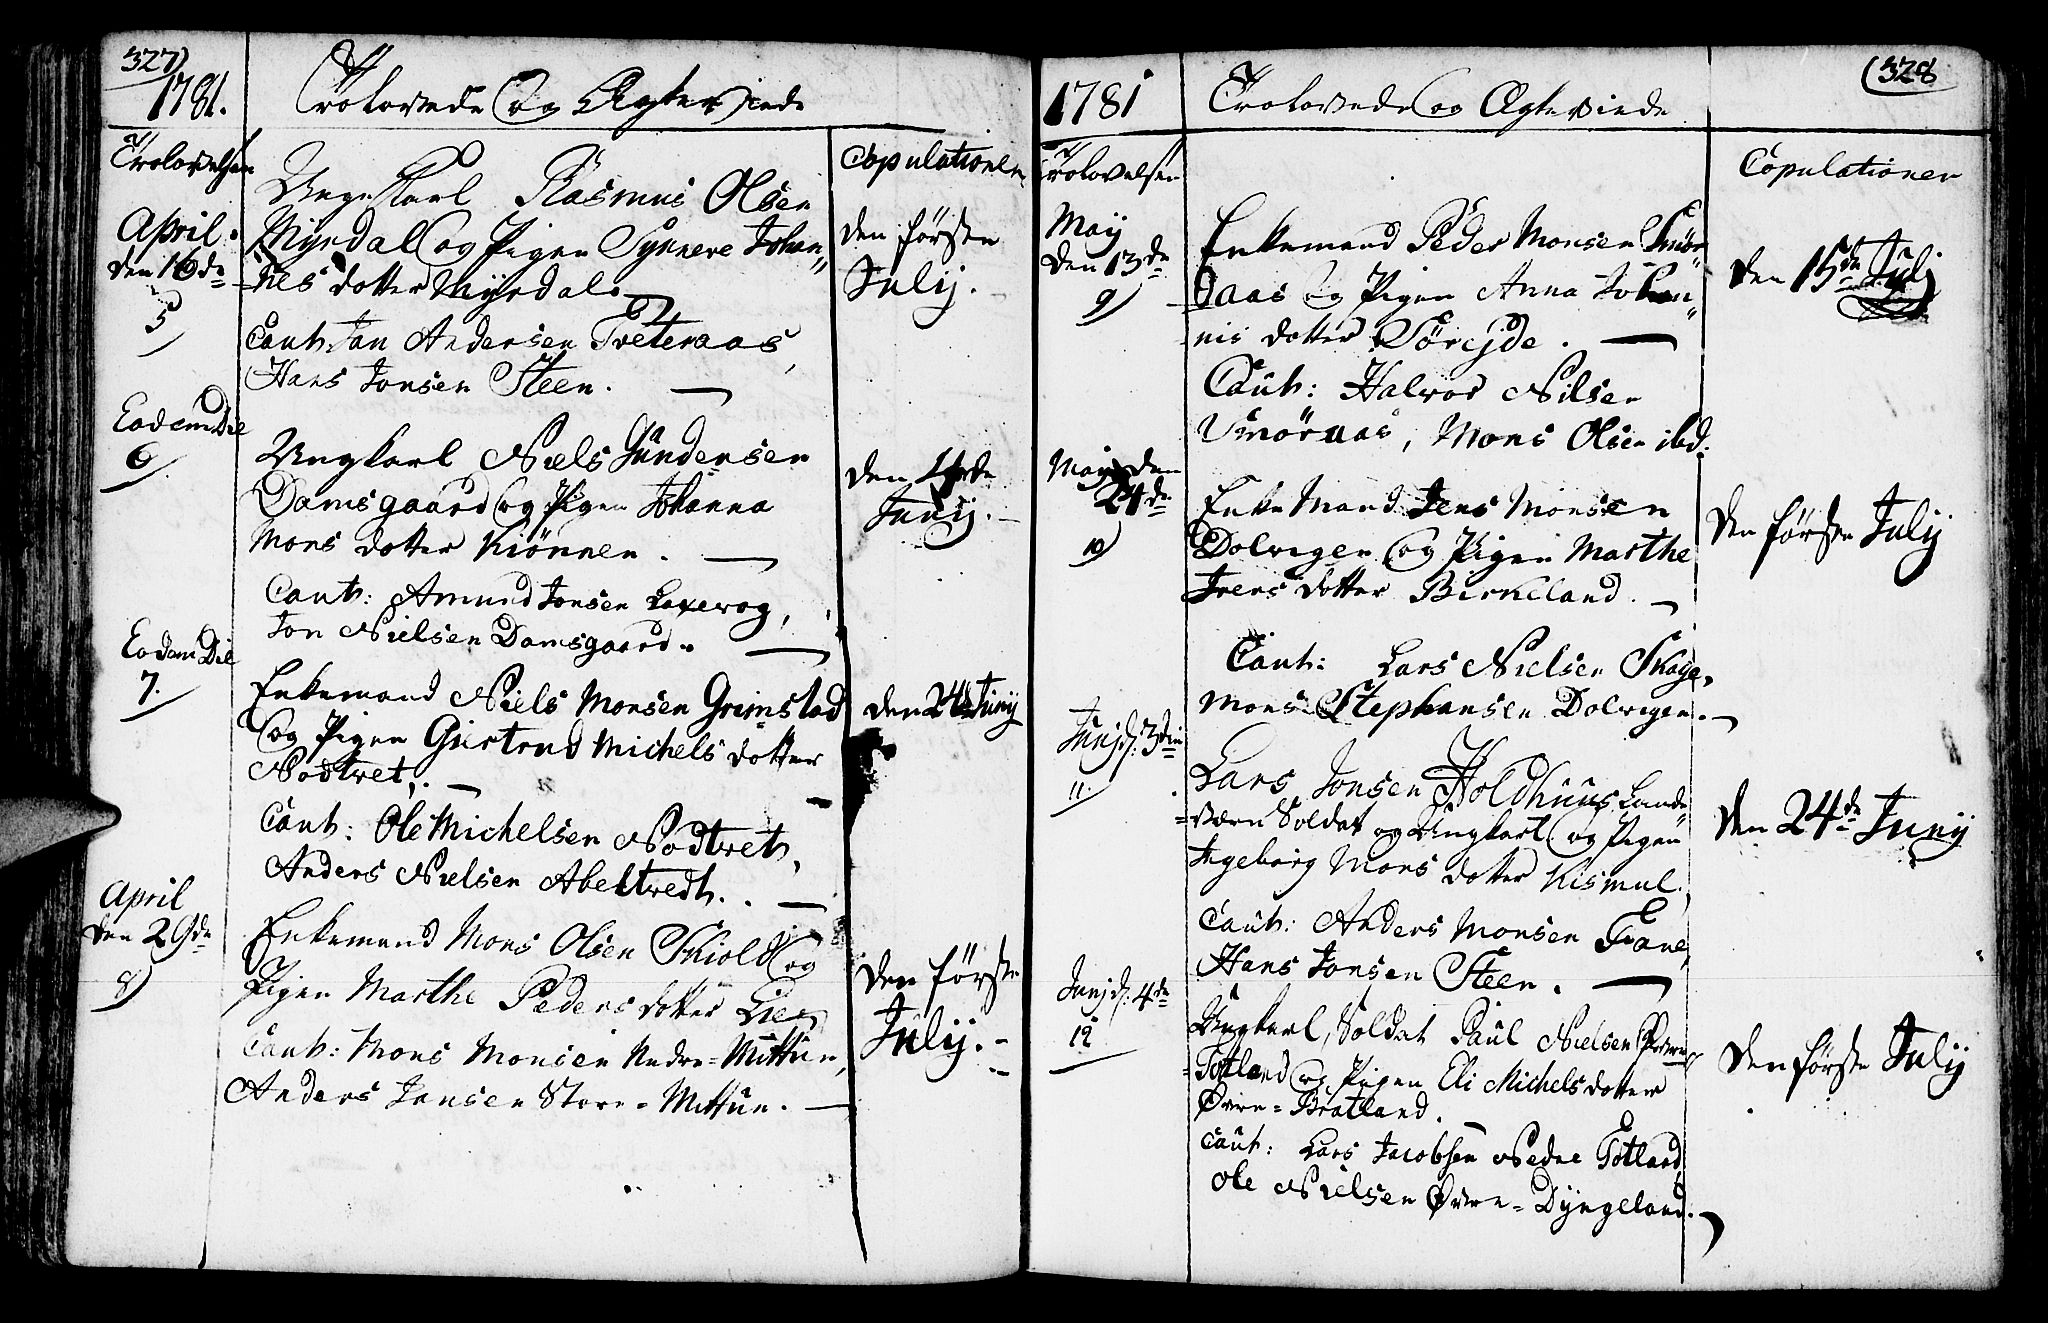 327)
1781.
Trolovede og Ægteviede
Trolovelsen
Copulationer
April
den 16de
5
Ungekarl Rasmus Olsen
Myrdal og Pigen Synneve Johan=
=nes dotter Myrdal.
Caut: Jan Andersen Tveteraas,
Hans Jonsen Steen.
den første
Julij.
Eodem Die
6
Ungkarl Niels Gundersen
Damsgaard og Pigen Johanna
Mons dotter Kiønnen.
Caut: Amund Jonsen Laxevog,
Jon Nielsen Damsgaard.
den
Junij.
Eodem Die
7.
Enkemand Niels Monsen Grimstad
og Pigen Giertrud Michels dotter
Nødtvet.
Caut: Ole Michelsen Nødtvet,
Anders Nielsen Abeltvedt.
den 24de Junij
April
den 29de
8)
Enkemand Mons Olsen Skiold og
Pigen Marthe Peders dotter Lien
Caut: Mons Monsen Nedre=Mittun,
Anders Jansen Store=Mittun.
den første
Julij.
(328
1781
Trolovede og Ægteviede
Trolovelsen
Copulationer
May
den 13de
9)
Enkemand Peder Monsen Smør=
=aas og Pigen Anna Johan=
=nis dotter Sørejde.
Caut: Halvor Nilsen
Smøraas, Mons Olsen ibd:
den 15de Julj
May den
24de
10)
Enke Mand Jens Monsen
Dolvigen og Pigen Marthe
Ivers dotter Birkeland.
Caut: Lars Nielsen Skage,
Mons Stephansen Dolvigen.
den første Julij
Junj d: 3die
11.
Lars Jonsen Holdhuus Lande=
=værn Soldat og Ungkarl og Pigen
Ingeborg Mons dotter Kismul.
Caut: Anders Monsen Fane,
Hans Jonsen Steen.
den 24de Junij
Junj d: 4de
12
Ungkarl, Soldat Paul Nielsen
=Totland og Pigen Eli Michels dotter
Øvre=Bratland.
Caut: Lars Jacobsen Nedre Totland,
Ole Nielsen Øvre=Dyngeland.
den første Julij